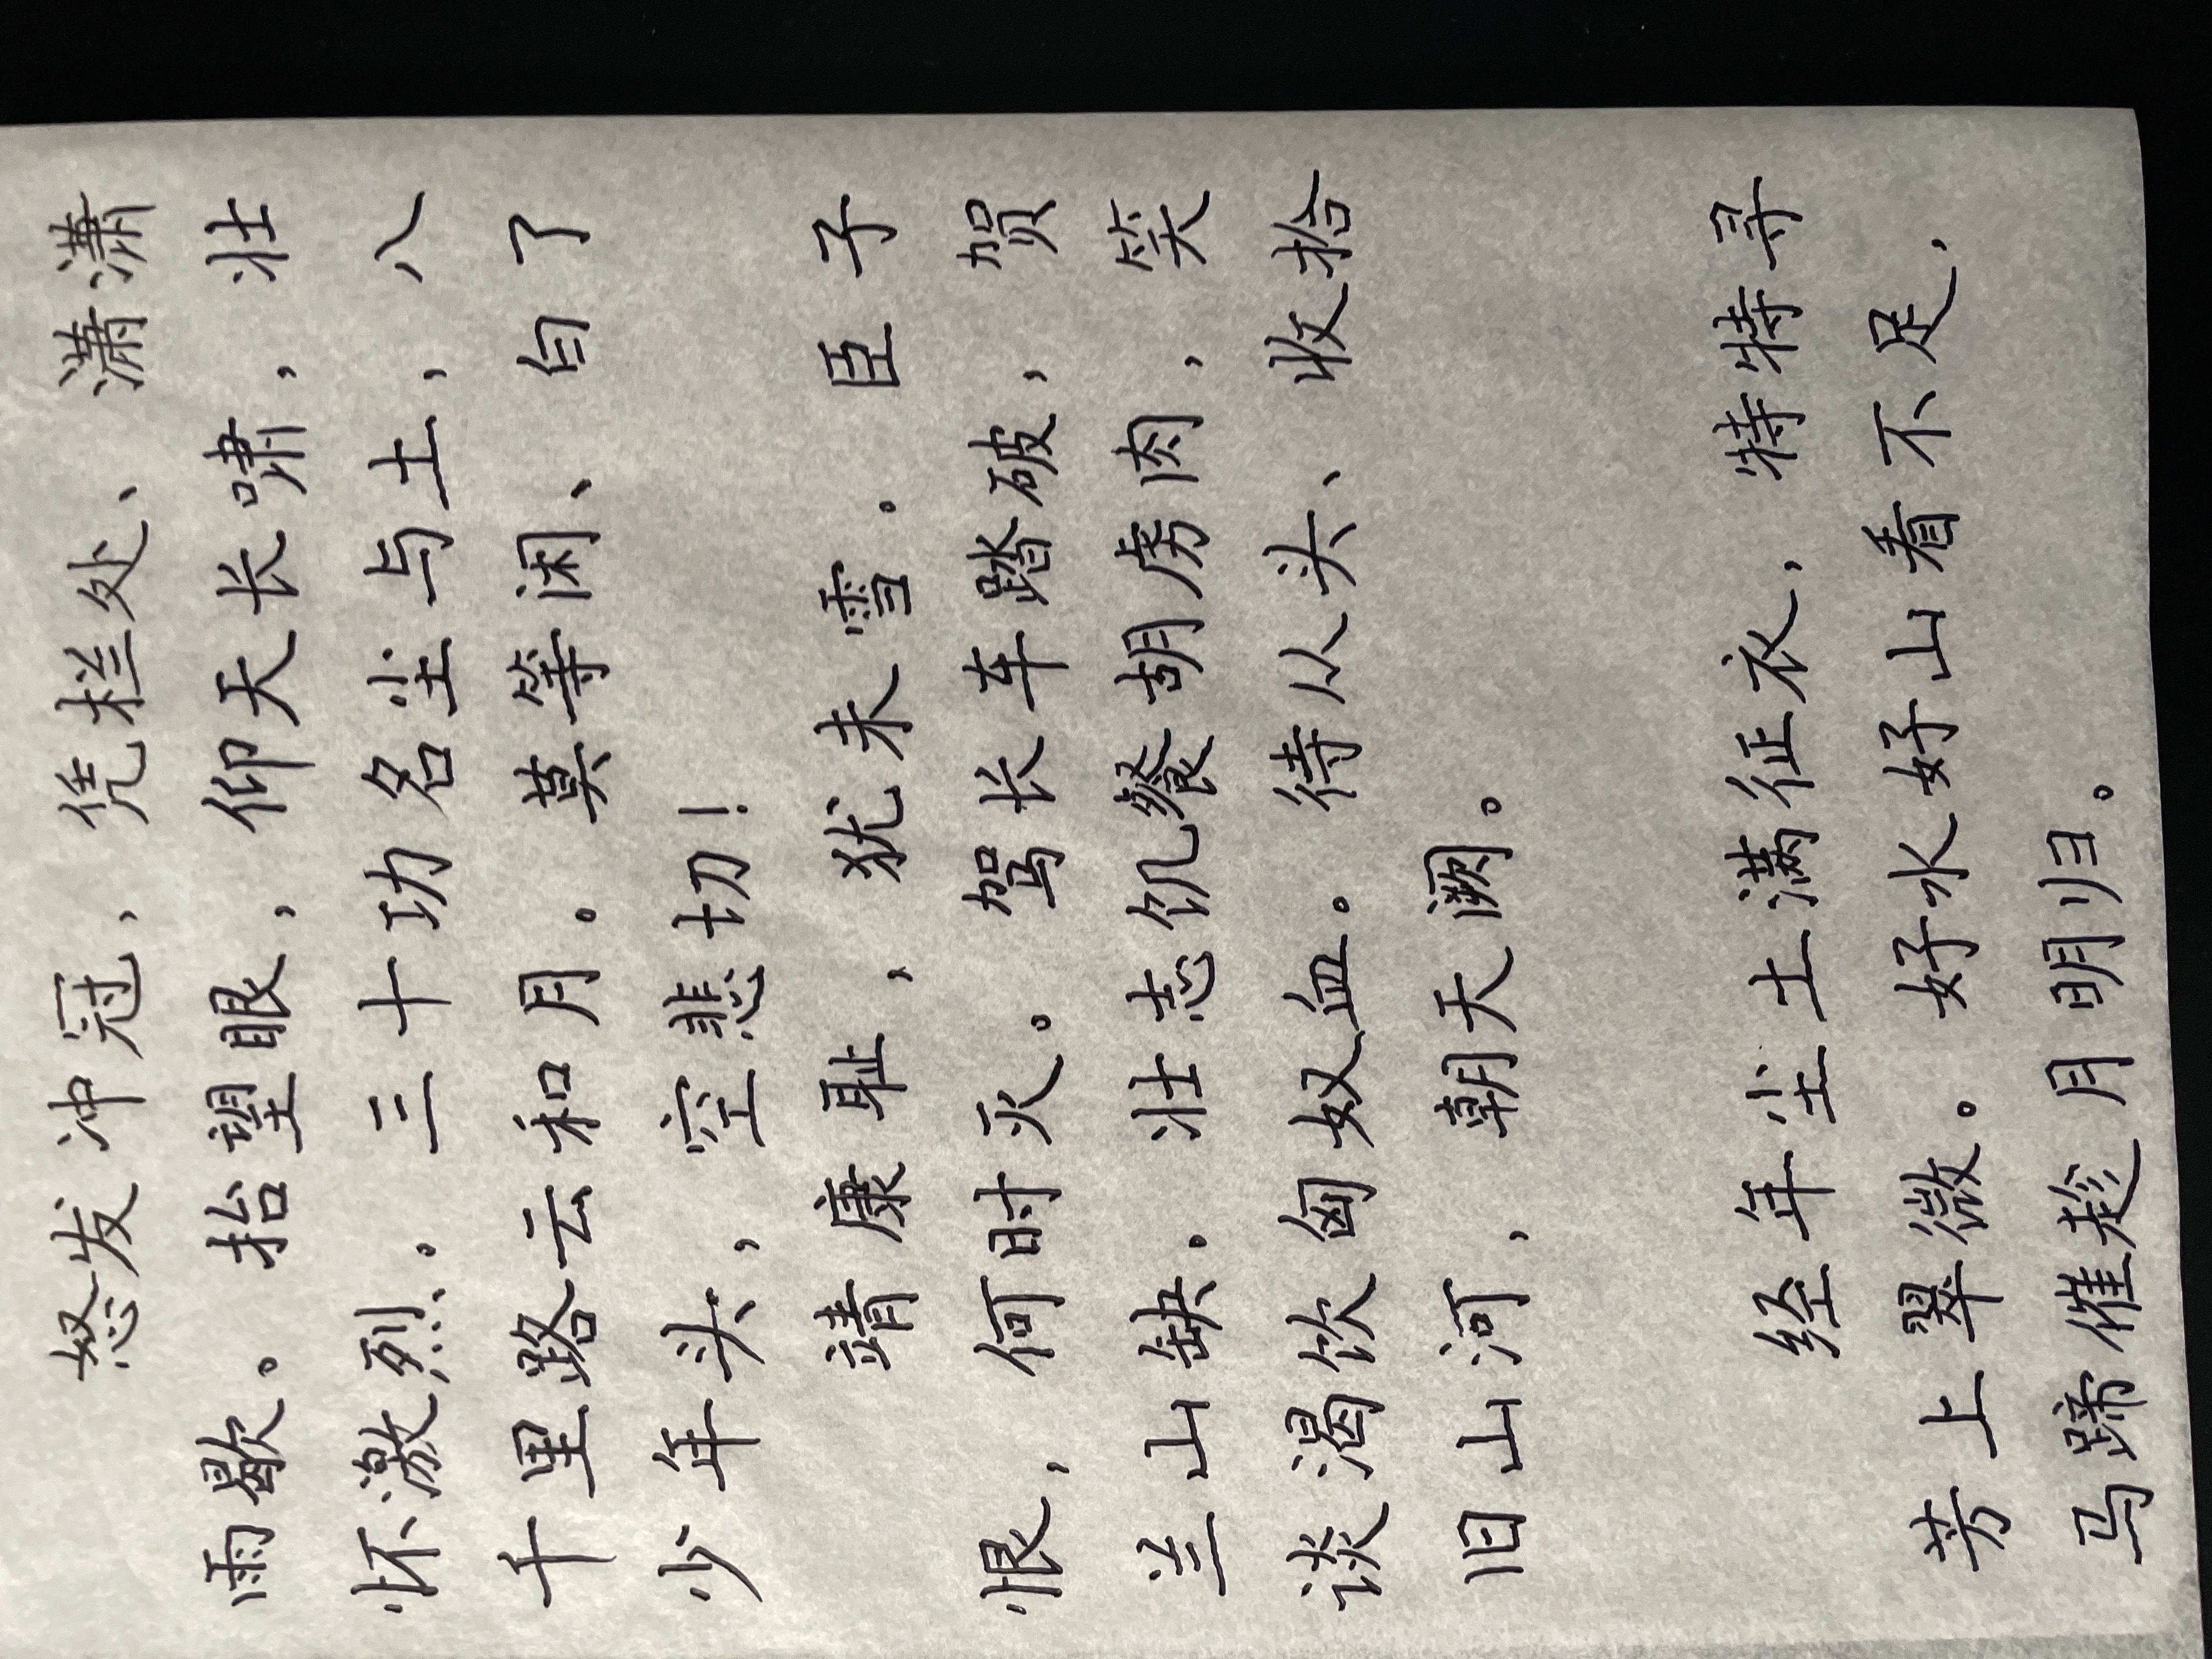 怒发冲冠，凭栏处、潇潇
雨歇。抬望眼，仰天长啸，壮
怀激烈。三十功名尘与土，八
千里路云和月。莫等闲、白了
少年头，空悲切！
靖康耻，犹未雪。臣子
恨，何时灭。驾长车踏破，贺
兰山缺。壮志饥餐胡虏肉，笑
谈渴饮匈奴血。待从头、收拾
旧山河，朝天阙。
经年尘土满征衣，特特寻
芳上翠微。好水好山看不足，
马蹄催趁月明归。